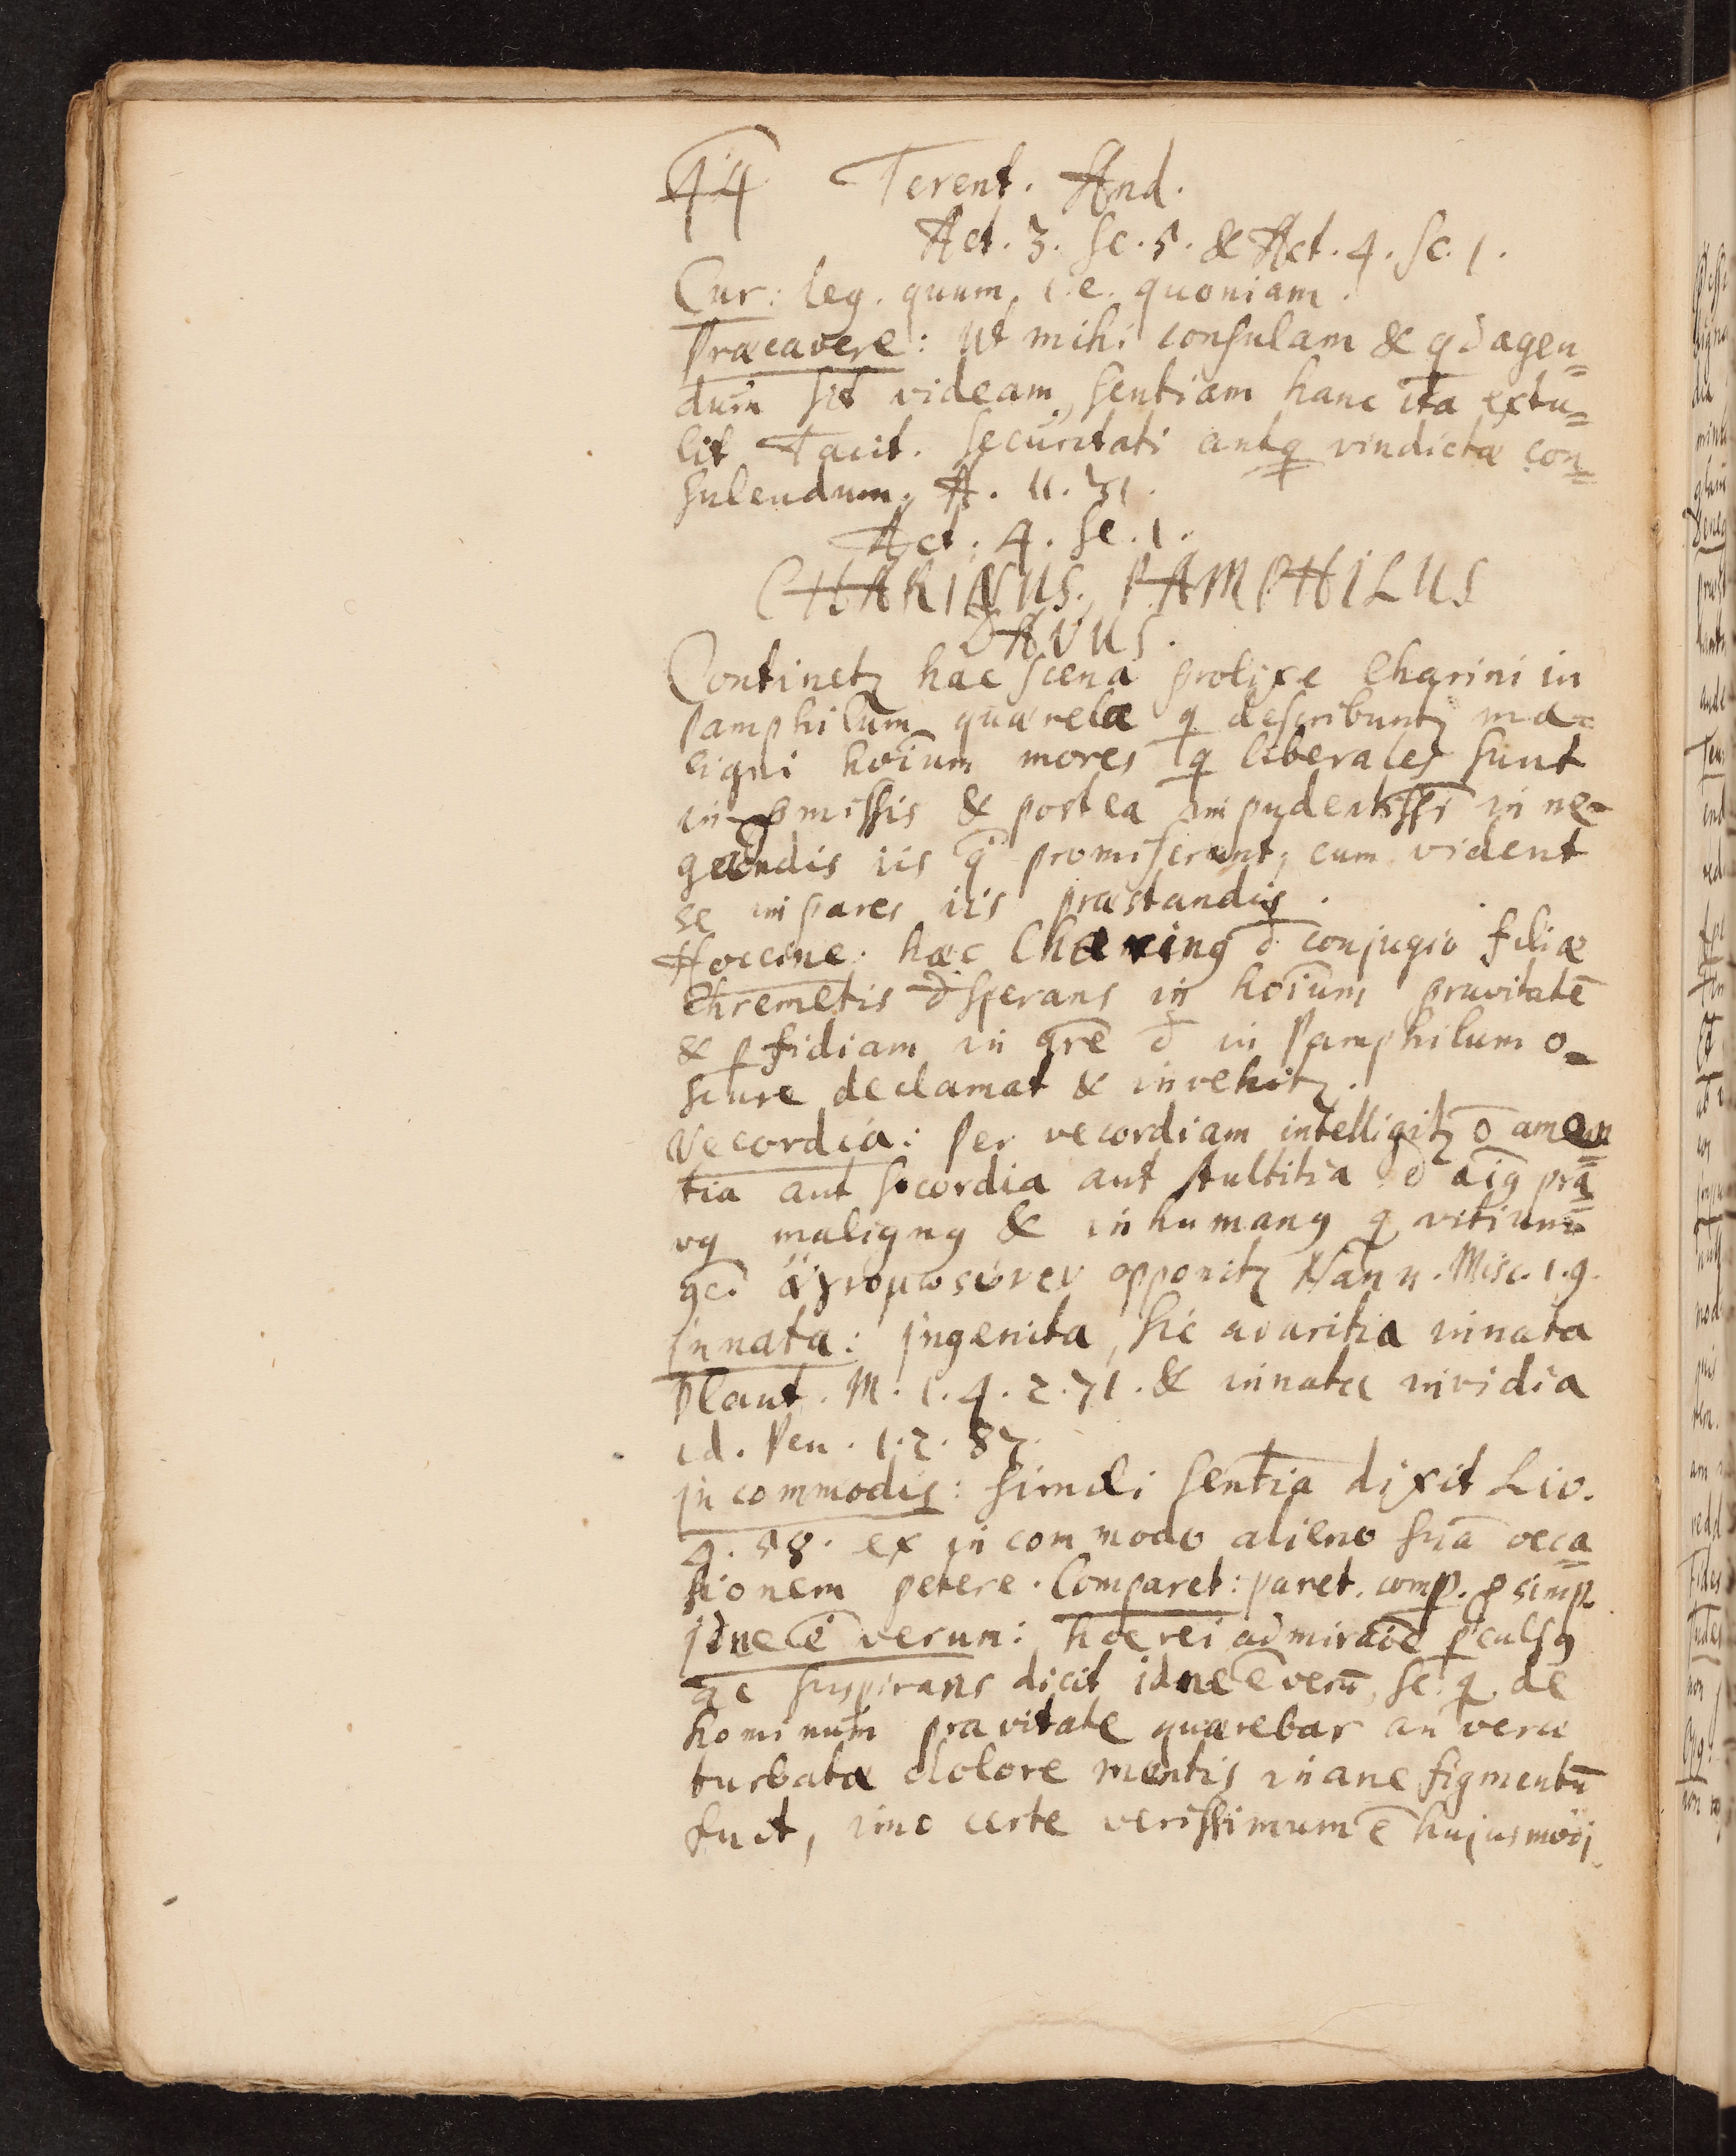 44 Terent. And.
Act. 3. Sc. 5. & Act. 4. Sc. 1.
Cur: leg. quum, i.e. quoniam.
Præcavere: Ut mihi consulam & qd agen=
dum sit videam, sentiam hanc ita extu=
lit Tacit. Securitati antq̃ vindictæ con=
sulendum, A. 11. 31.
Act. 4. Sc. 1.
CHARINUS, PAMPHILUS
DAVUS.
Continetꝫ hæc scena prolixe Charini in
Pamphilum quærelæ q̃ describuntꝫ ma=
ligni hoĩum mores q̃ liberales sunt
in ꝓmissis & postea impudentissĩ in ne=
gandis iis q̃ promiserunt, cum vident
se impares iis præstandis.
Hoccine: hæc Charinꝰ đ conjugio filiæ
Chremetis đsperans in hoĩum pravitatẽ
& ꝑfidiam in gr̃e đ in Pamphilum o=
scure declamat & invehitꝫ.
Vecordia: Per vecordiam intelligitꝫ õ amen=
tia aut socordia aut stultitia đ aĩꝰ pra=
vꝰ malignꝰ & inhumanꝰ q̃ vitium
opponitꝫ Nann. Misc. 1. 9.
Innata: Ingenita, sic avaritia innata
Plaut. M. 1. 4. 2. 71. & innata invidia
id. Pen. 1. 2. 87.
Incommodis: simili sentia dixit Liv.
4. 58. ex incommodo alieno suã occa=
sionem petere. Comparet: paret. comp. ꝓ simp.
Idne ẽ verum: hoc rei admiraõe ꝑculsꝰ
ac suspirans dicit idne ẽ verũ, sc. q̃ de
hominum pravitate quærebar an veræ
turbatæ dolore mentis inane figmentũ
fuit, imo certe verissimum ẽ hujusmõi